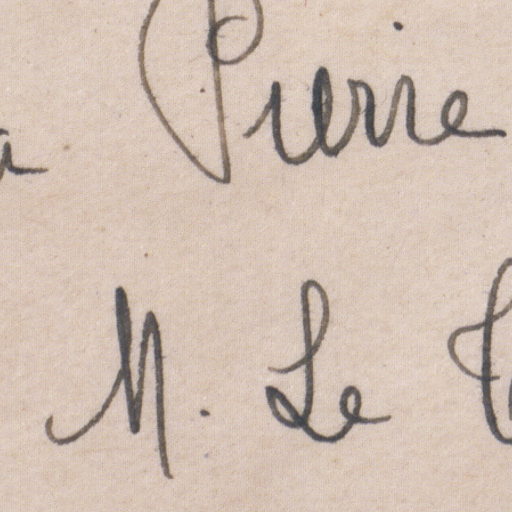 a Pierre
M. Le